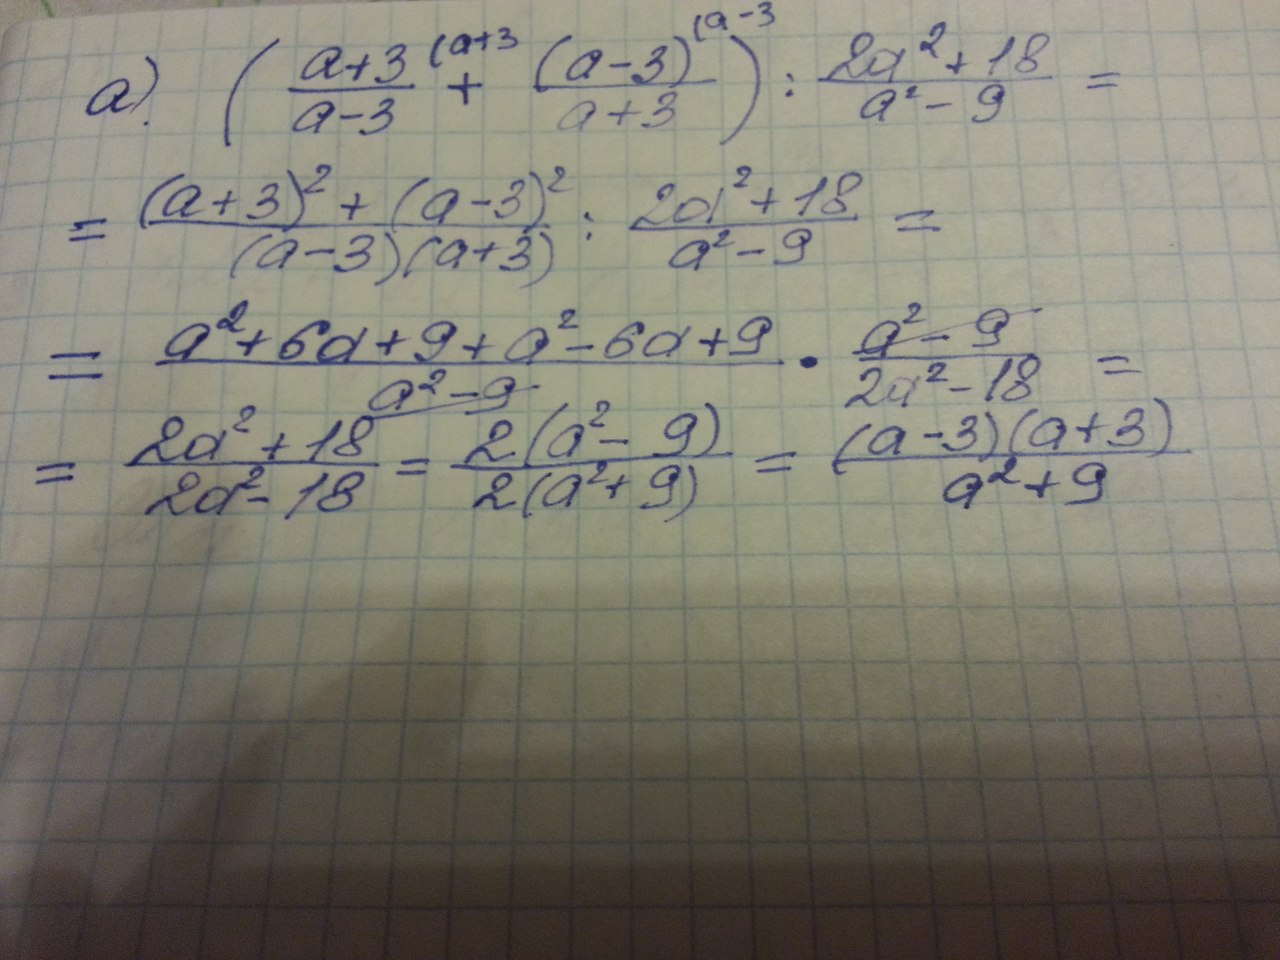 а) ((a+3)/(a-3) (a+3 + (a-3)/(a+3) (a-3) : (2a²+18)/(a²-9) =
= ((a+3)²+(a-3)²)/((a-3)(a+3)) : (2a²+18)/(a²-9) =
= (a²+6a+9+a²-6a+9)/(a²-9) · (a²-9)/(2a²-18) =
= (2a²+18)/(2a²-18) = 2(a²-9)/2(a²+9) = (a-3)(a+3)/(a²+9)